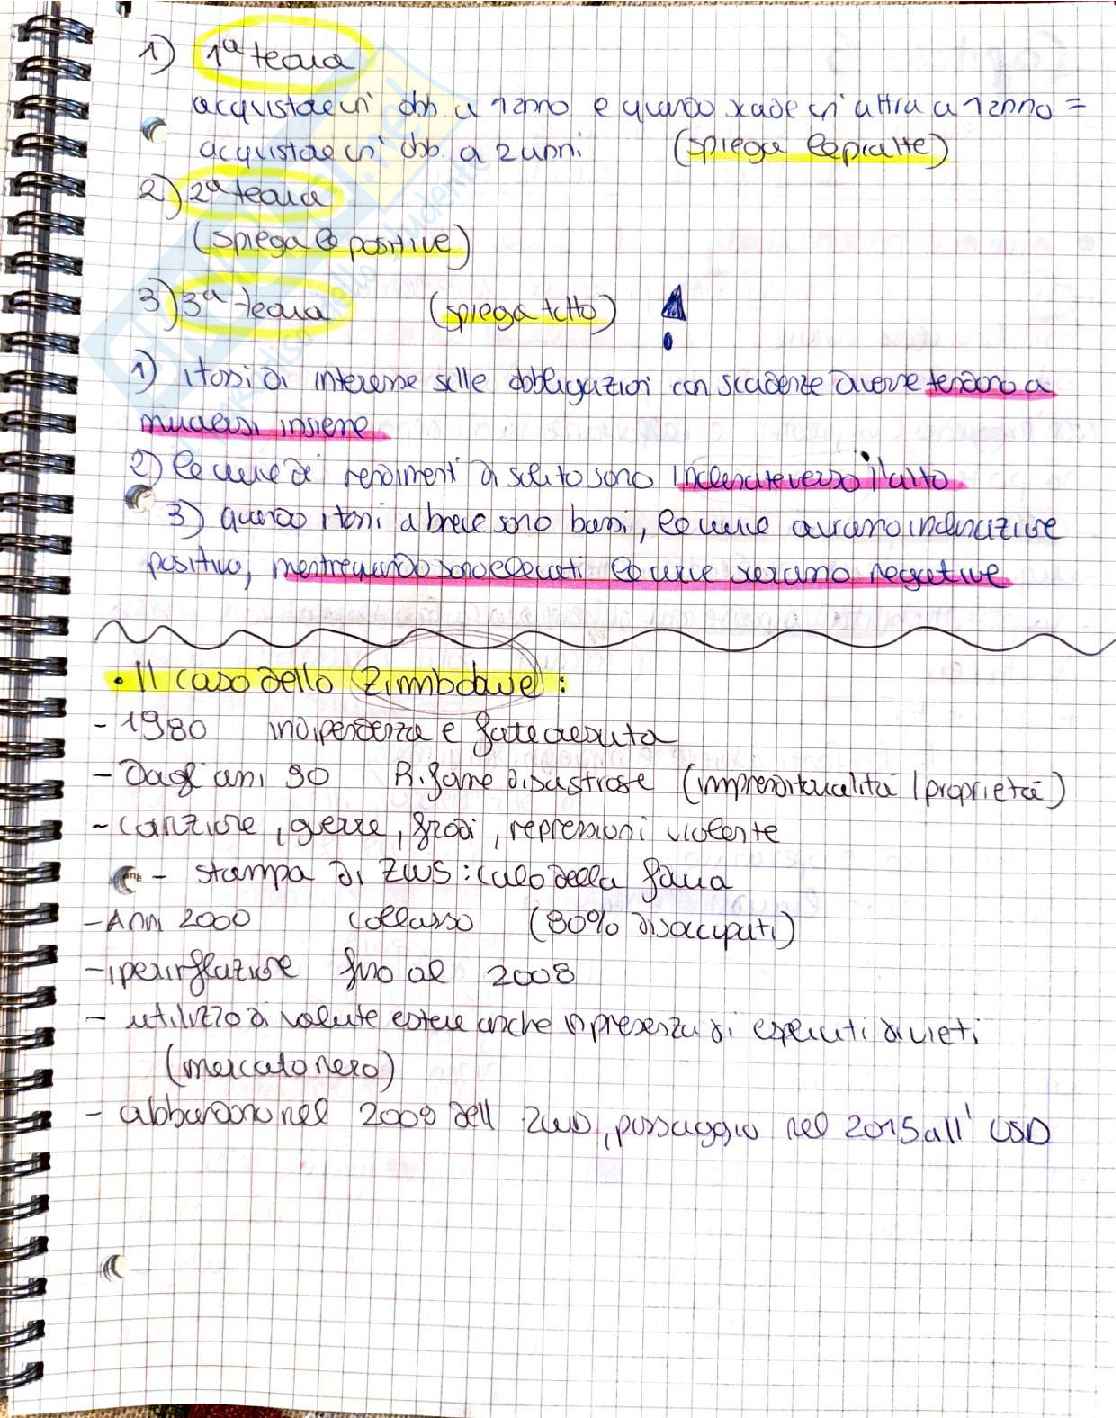 1) 1ª teoria
acquistare un' obb. a 1 anno e quando scade un' altra a 1 anno =
acquistare un' obb. a 2 anni (spiega le piatte)
2) 2ª teoria
(spiega le positive)
3) 3ª teoria (spiega tutto) !
1) i tassi di interesse sulle obbligazioni con scadenze diverse tendono a
muoversi insieme
2) le curve di rendimenti di solito sono inclinate verso l'alto
3) quando i tassi a breve sono bassi, le curve avranno inclinazione
positiva, mentre quando sono elevati le curve saranno negative
• Il caso dello Zimbabwe :
- 1980 indipendenza e forte crescita
- Dagli anni 90 Riforme disastrose (imprenditorialità / proprietà)
- corruzione, guerre, frodi, repressioni violente
- stampa di ZWS : calo della
- Anni 2000 collasso (80% disoccupati)
- iperinflazione fino al 2008
- utilizzo di valute estere anche in presenza di espliciti divieti
(mercato nero)
- abbandono nel 2009 dell ZWD, passaggio nel 2015 all' USD